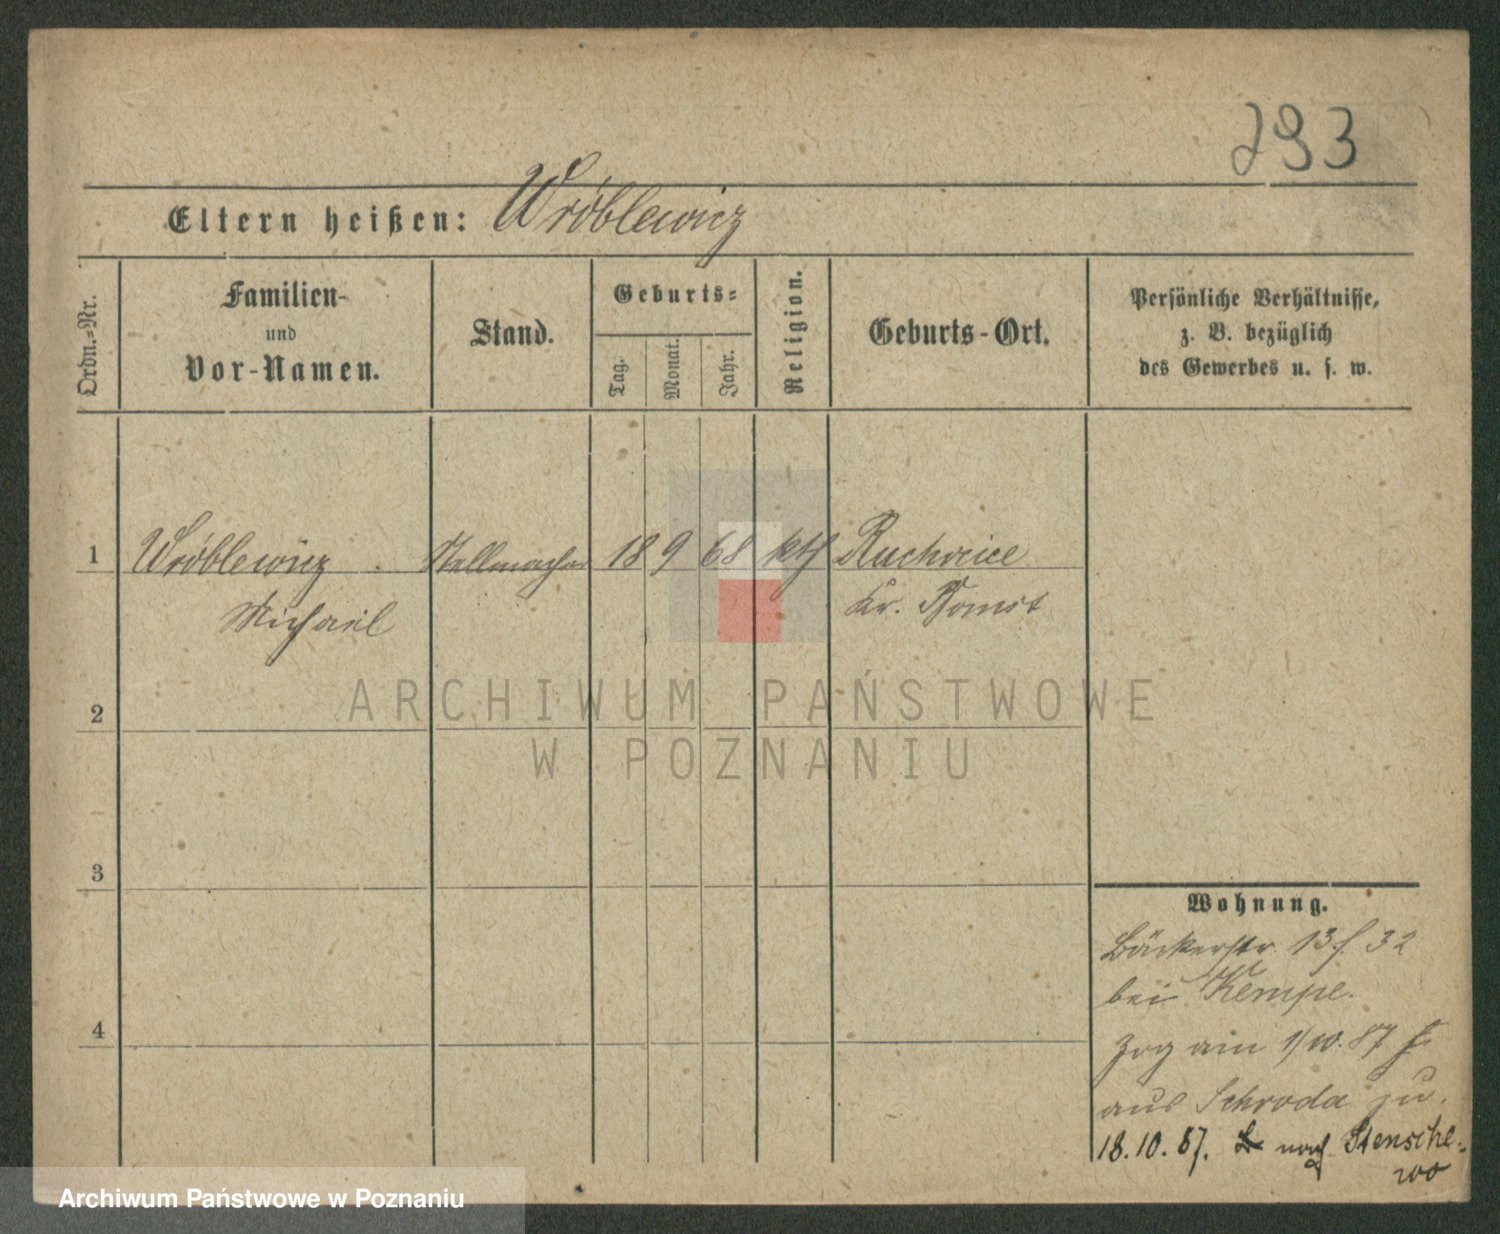 293
Eltern heißen: Wróblewicz
Ordn.-Nr.
Familien-
und
Vor-Namen.
Stand.
Geburts-
Tag.
Monat.
Jahr.
Religion.
Geburts-Ort.
Persönliche Verhältnisse,
z. B. bezüglich
des Gewerbes u. s. w.
1 Wróblewicz Stellmacher 18 9 68 kth Ruchocice
Michael Kr. Bomst
2
3
4
ARCHIWUM PAŃSTWOWE
W POZNANIU
Wohnung.
Bäckerstr. 13 f. 32
bei Kempe.
Zog am 1/10.87
aus Schroda zu.
18.10.87. nach Stensche-
wo
Archiwum Państwowe w Poznaniu